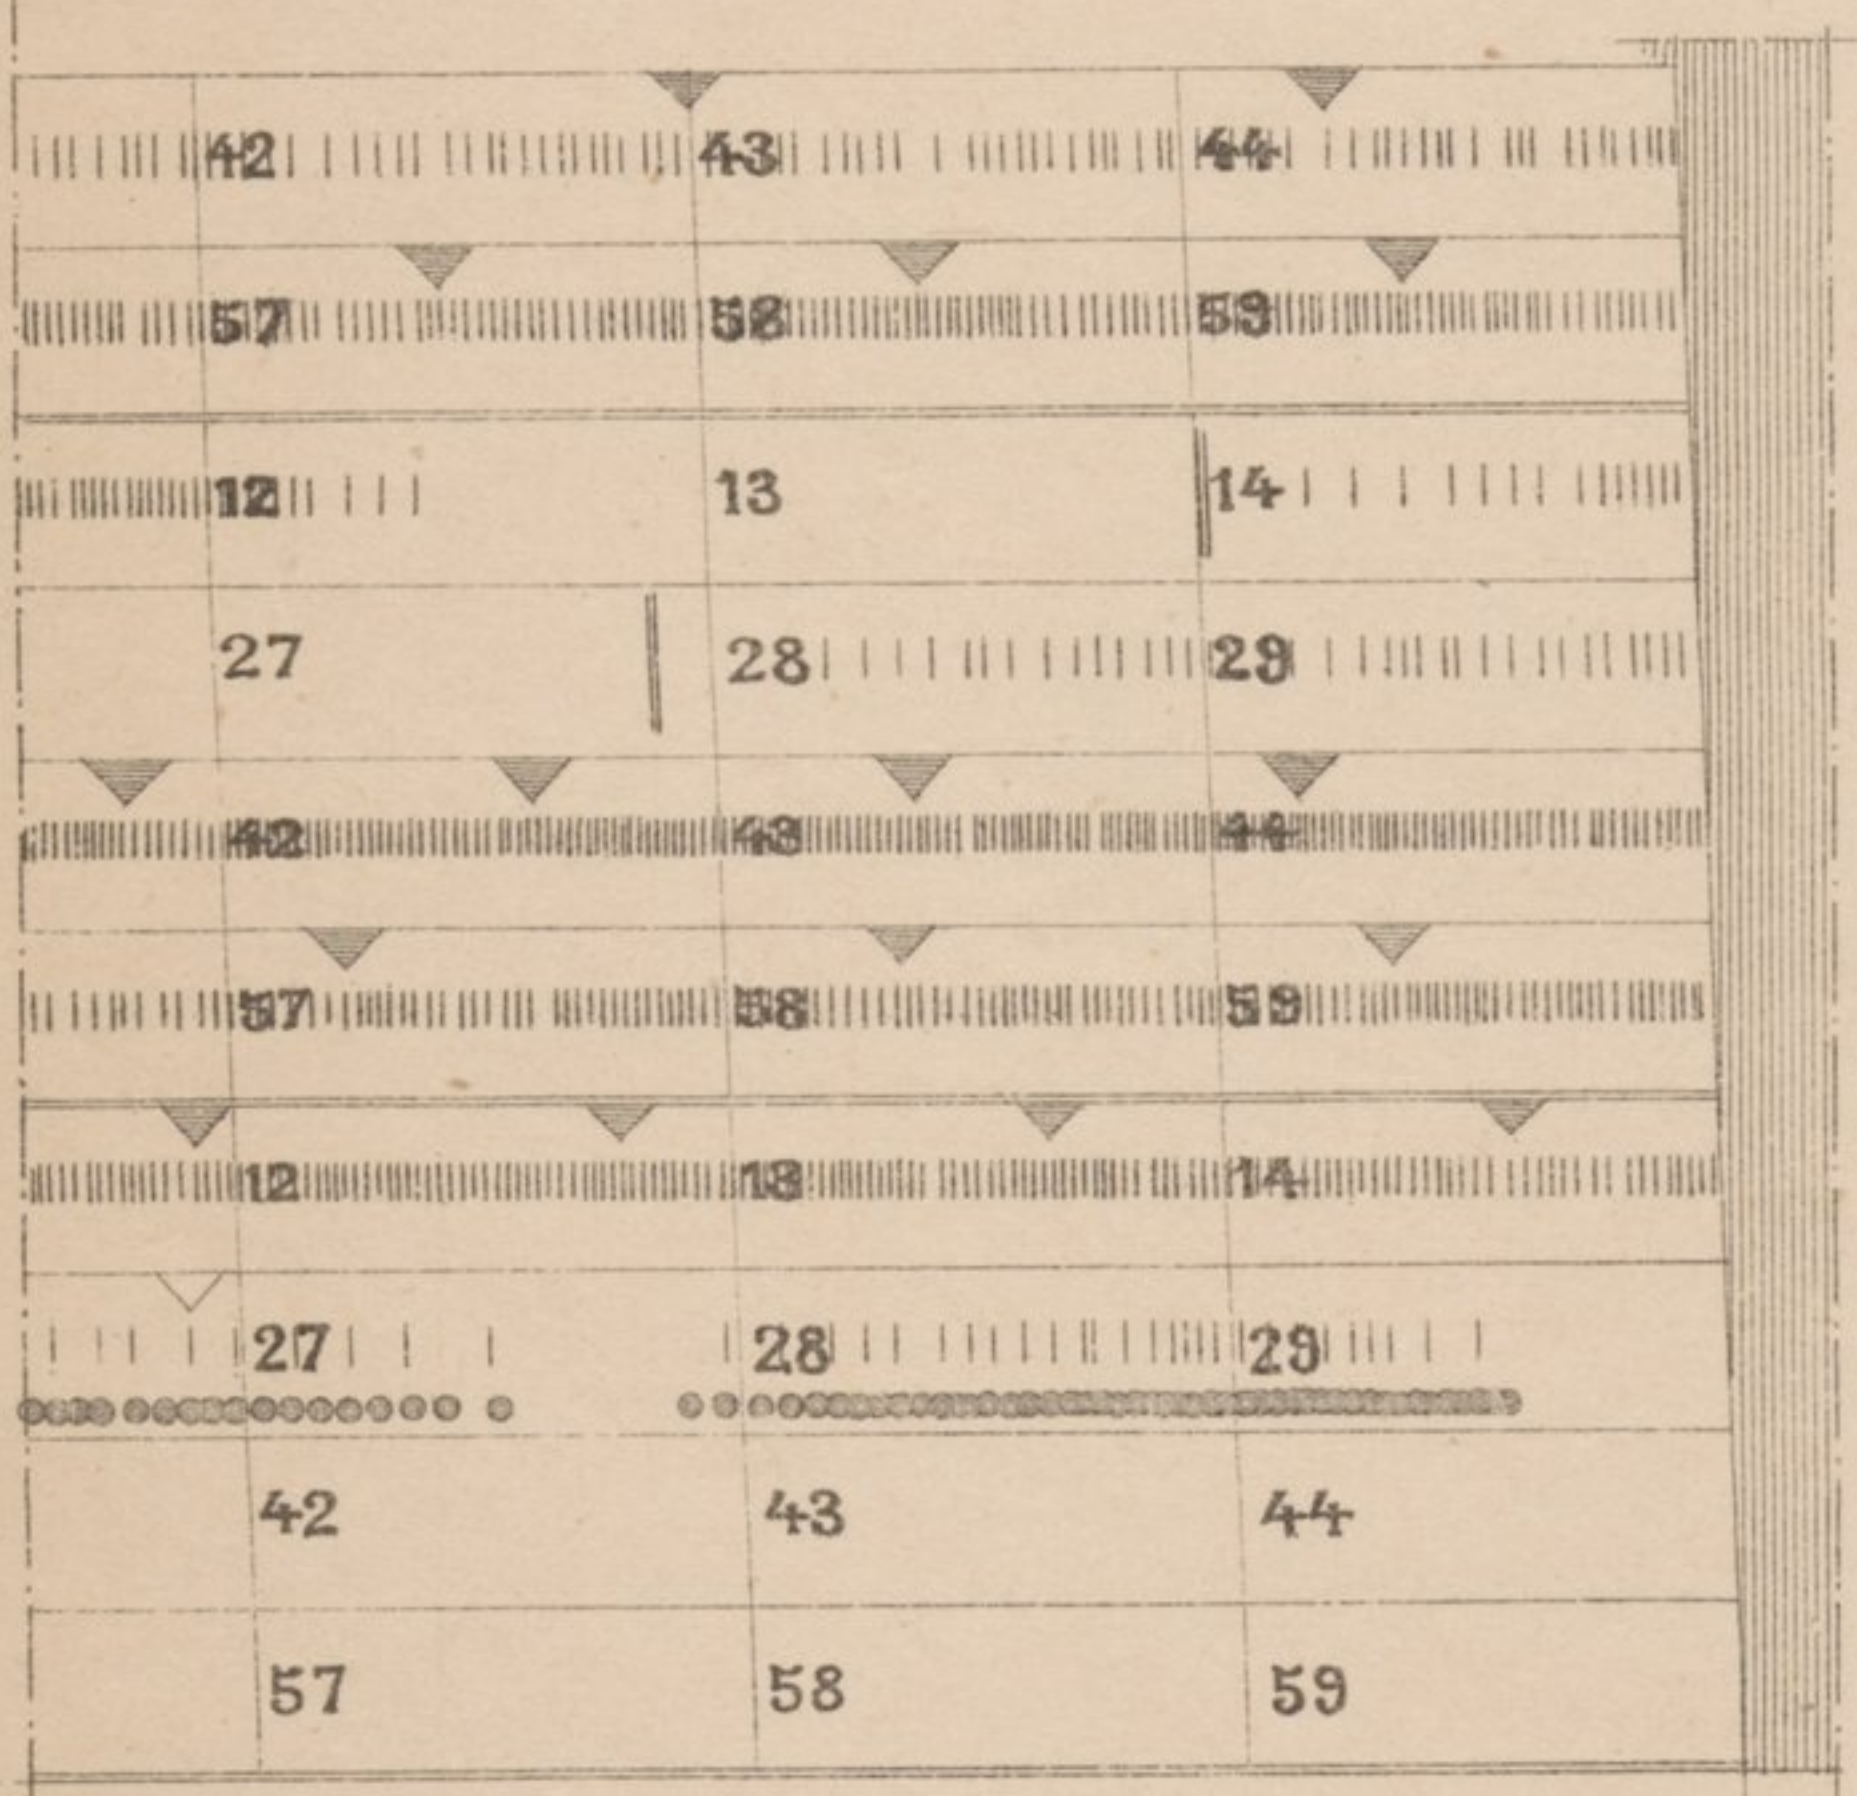 42 43 44
57 58 59
12 13 14
27 28 29
42 43 44
57 58 59
12 13 14
27 28 29
42 43 44
57 58 59